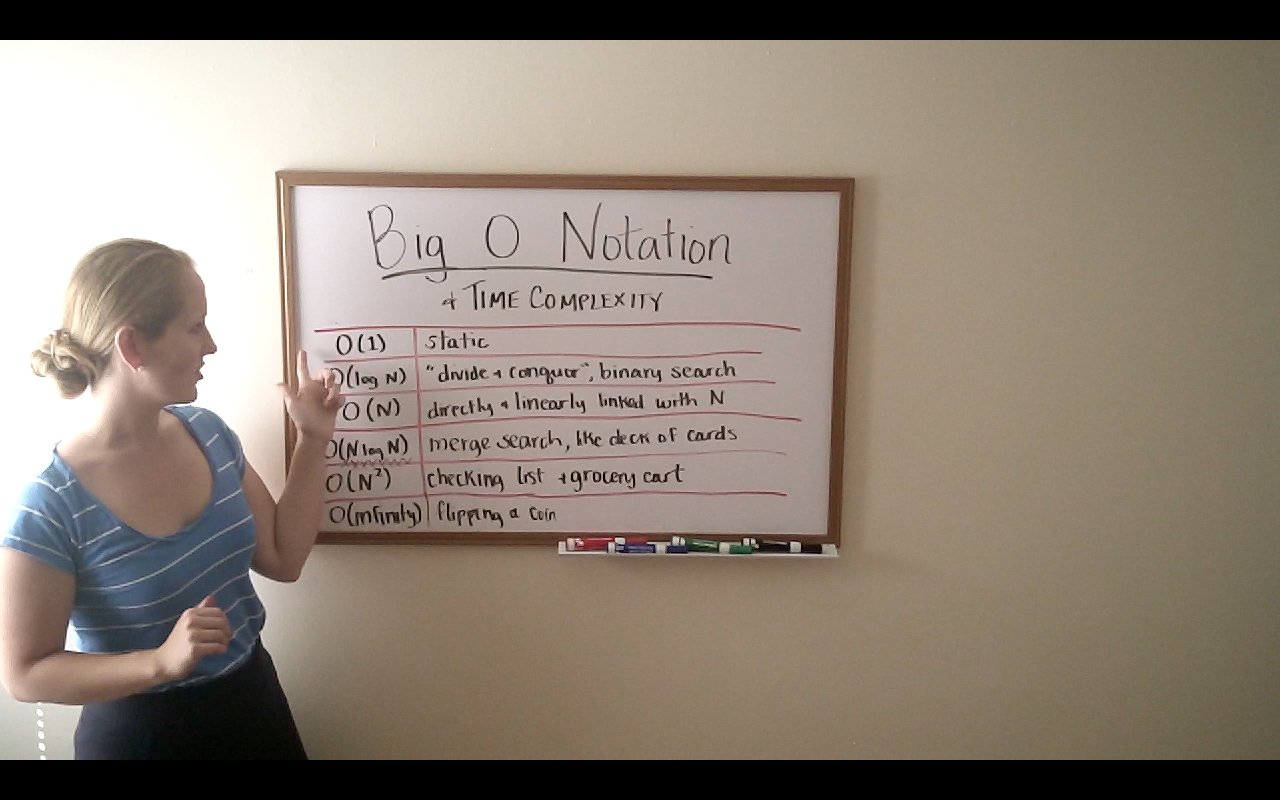 Big O Notation
+ TIME COMPLEXITY
O(1) static
O(log N) "divide + conquor", binary search
O(N) directly + linearly linked with N
O(N log N) merge search, like deck of cards
O(N²) checking list + grocery cart
O(infinity) flipping a coin